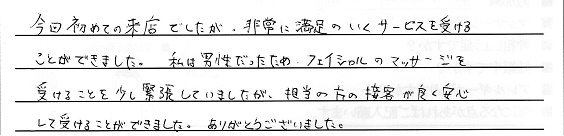 今回初めての来店でしたが、非常に満足のいくサービスを受ける
ことができました。 私は男性だったため、フェイシャルのマッサージを
受けることを少し緊張していましたが、担当の方の接客が良く安心
して受けることができました。ありがとうございました。